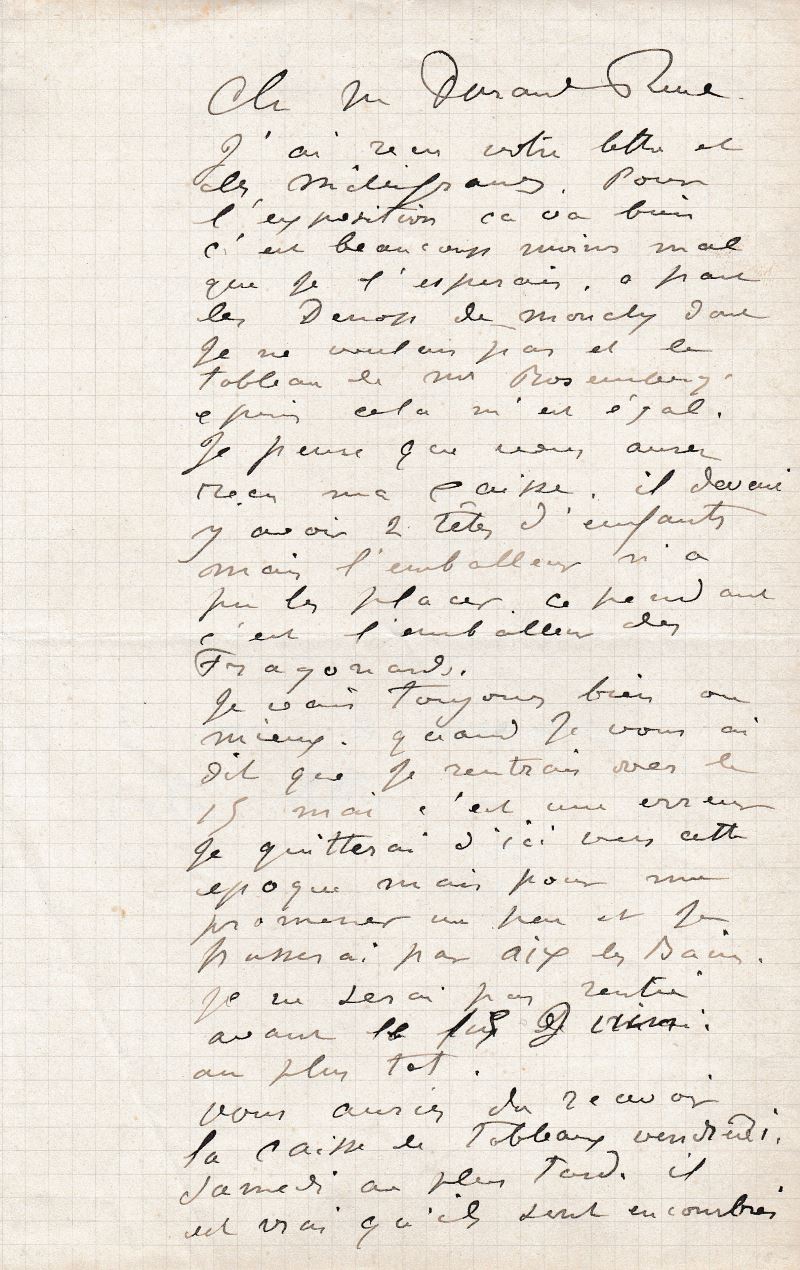 Ch M Durand Ruel
J'ai recu votre lettre et
les mille francs. Pour
l'exposition ca va bien
c'est beaucoup moins mal
que je l'esperais. a part
les de mouchy dont
Je ne voulais pas et le
tableau de mr Rosemberg.
e puis cela m'est égal.
Je pense que vous aurez
reçu ma caisse. il devait
y avoir 2 têtes d'enfants
mais l'emballeur n'a
pu les placer. cependant
c'est l'emballeur des
Fragonards.
Je vais toujours bien ou
mieux. quand Je vous ai
dit que Je rentrais vers le
15 mai c'est une erreur
Je quitterai d'ici vers cette
epoque mais pour me
promener un peu et Je
passerai par aix les Bains.
Je ne serai pas rentré
avant
au plus tot.
vous auriez du recevoir
la caisse de Tableaux vendredi.
Samedi au plus tard. il
est vrai qu'ils sont encombrés